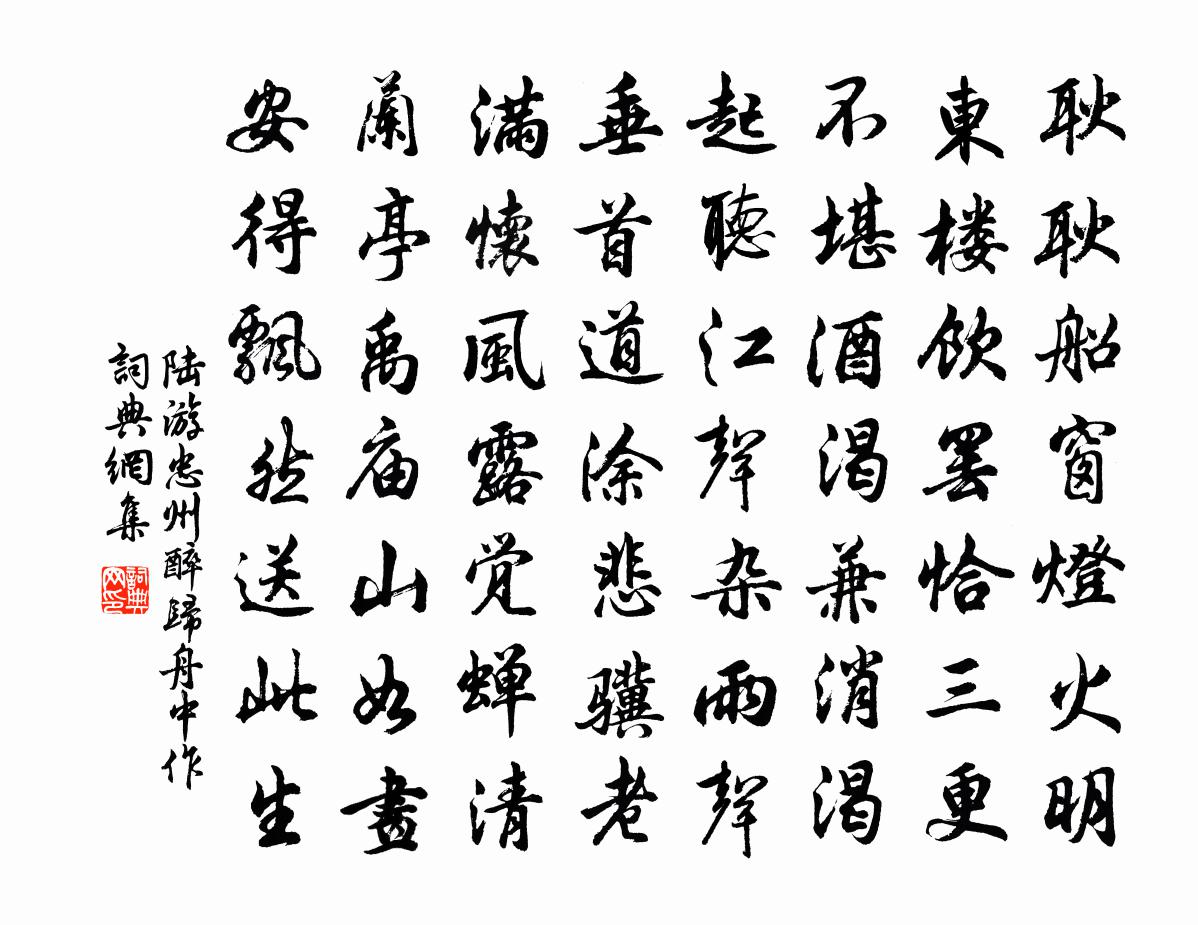 耿耿船窗燈火明
東楼飲罢恰三更
不堪酒渴兼消渴
起聴江声杂雨声
垂首道涂悲骥老
满懷風露觉蝉清
蘭亭禹庙山如畫
安得飄然送此生
陆游忠州醉歸舟中作
詞典網集
詞典